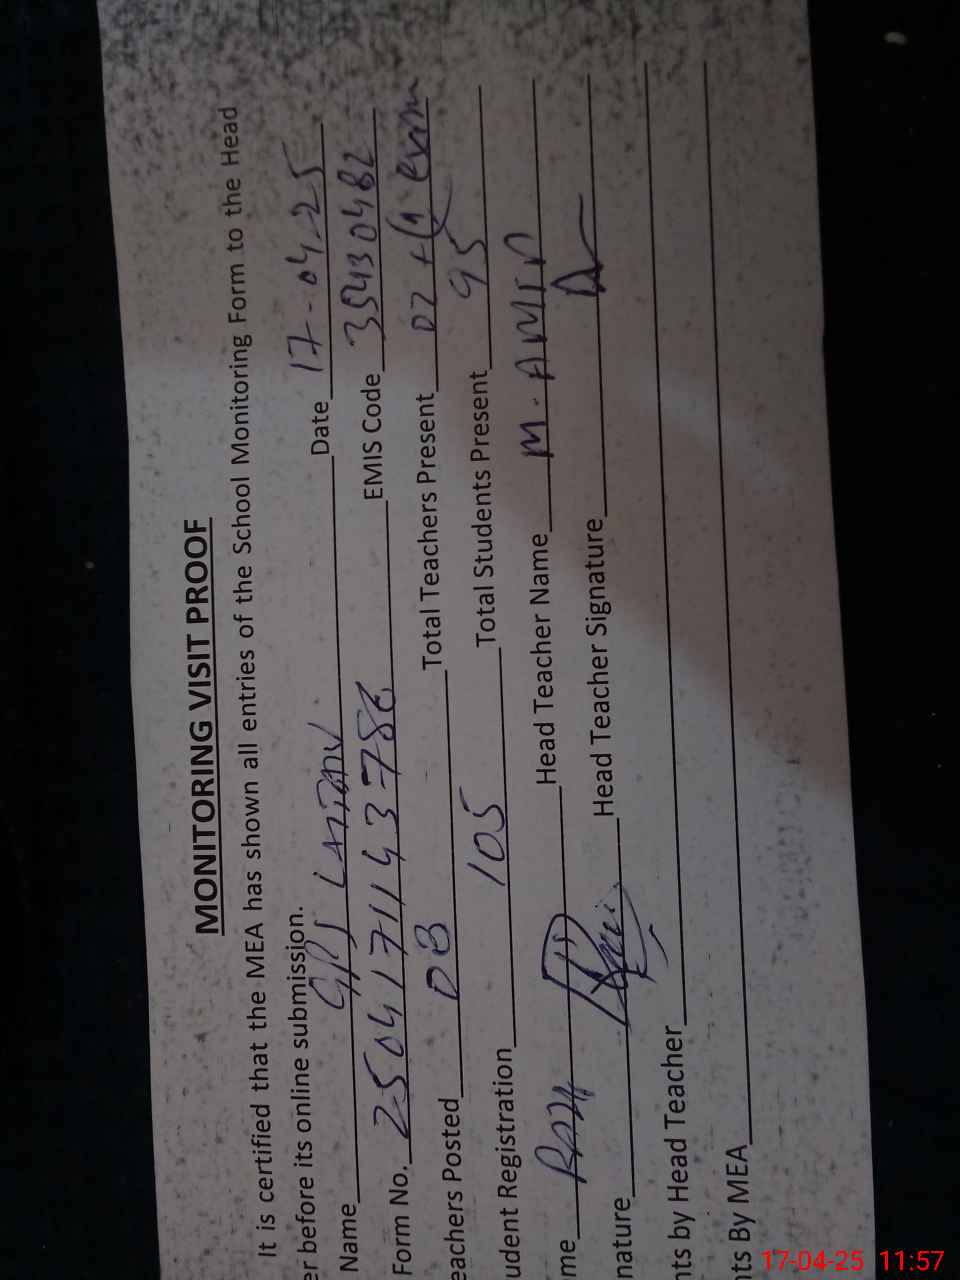 MONITORING VISIT PROOF
It is certified that the MEA has shown all entries of the School Monitoring Form to the Head
er before its online submission.
Name GPS Date 17-04-25
Form No. 250417114378 EMIS Code 35430482
eachers Posted 03 Total Teachers Present 02 + (1 exam
udent Registration 105 Total Students Present 95
me Head Teacher Name M. AMIN
nature Head Teacher Signature
nts by Head Teacher
ts By MEA
17-04-25 11:57